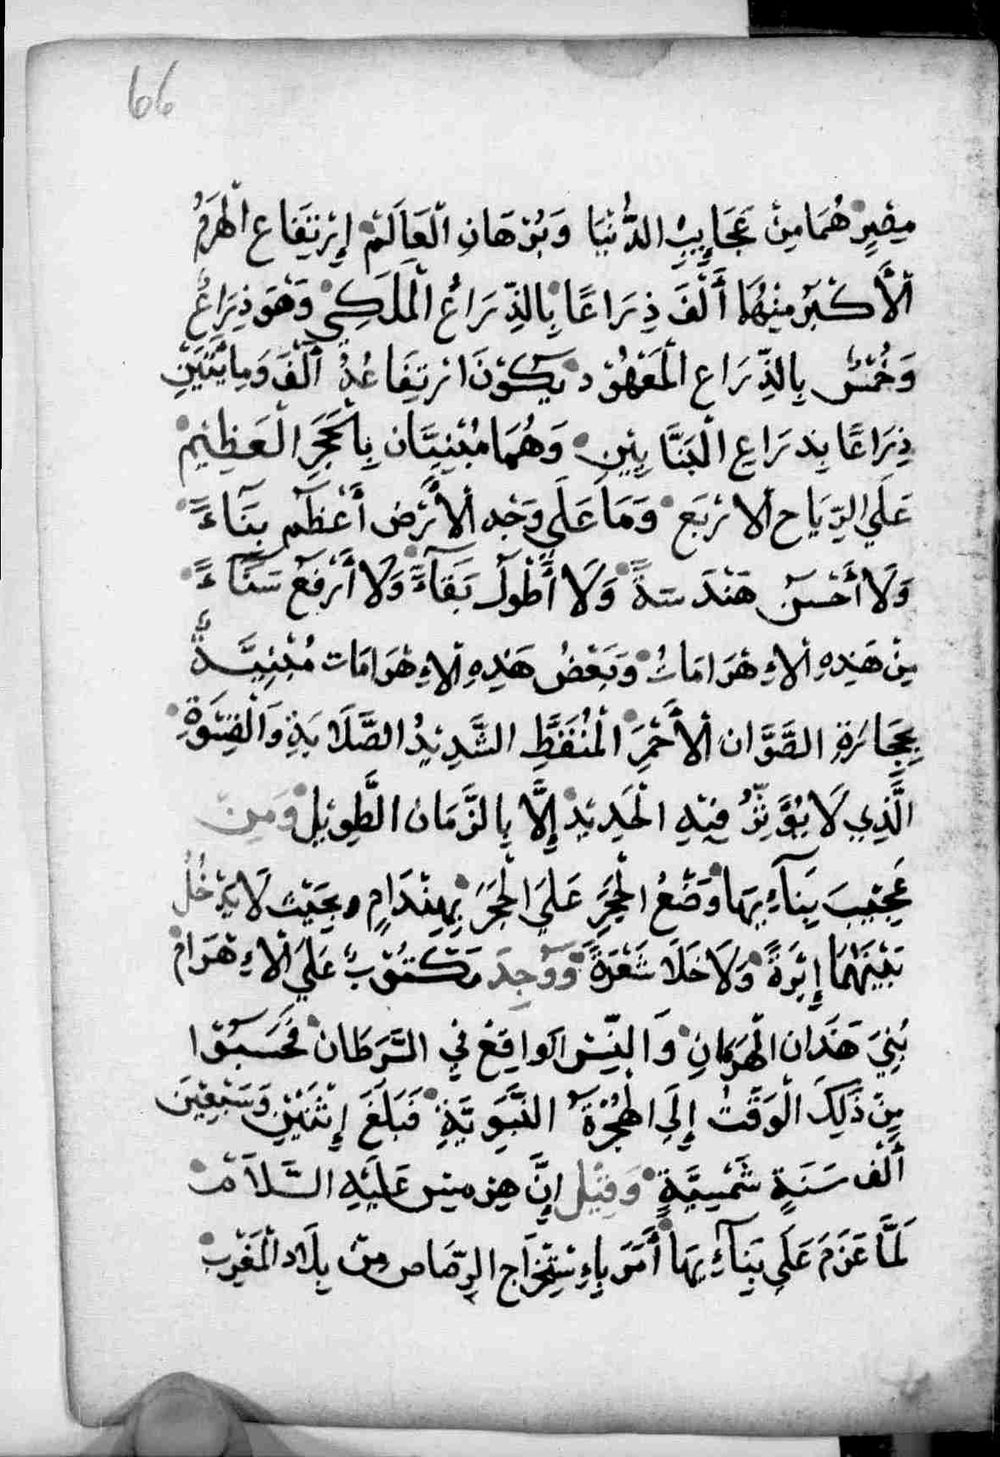 66
مِصْرٍ هُمَا مِنْ عَجَايِبِ الدُّنْيَا وَبُرْهَانِ الْعَالَمْ إِرْتِفَاع الْهَرَمُ
الْأَكْبَرْ مِنْهُمَا أَلْفَ ذِرَاعًا بِالذِّرَاعُ الْمَلَكِي وَهْوَ ذِرَاعُ
وَخُمْسُ بِالذِّرَاعِ الْمَعْهُوْد يَكُوْنَ ارْتِفَاعُهُ أَلْفَ وَمِايْتَيْنِ
ذِرَاعًا بِذرَاعِ الْبَنَّايِيْنِ وَهُمَا مُبْنِيَّانِ بِالْحَجَرِ الْعَظِيْمْ
عَلَي الرِّيَاحِ الارْبَعْ وَمَا عَلَي وَجْهِ الأَرْضِ أَعْظَمَ بِنَآءً
وَلَا أَحْسَنَ هَنْدَسَةً وَلَا أَطْوَلَ بَقَآءً وَلَا أَرْفَعَ سَنَآءً
مِنْ هَذِهِ الاءِهْرَامَاتُ وَبَعْضُ هَذِهِ الاءِهْرَامَات مُبْنِيَّةٌ
بِحِجَارَةِ الصَّوَّان الأَحْمَرِ الْمُنُقَّطِ الشَّدِيْدُ الصَّلَابَةِ وَالْقِسْوَةِ
الَّذِي لَا يُؤَثِّرُ فِيْهِ الْحَدِيْدْ إِلَّا بِالزَّمَانِ الطَّوِيْلْ وَمِنْ
عَجِيْبَ بِنَآءِيهَا وَضْعُ الْحَجَرِ عَلَي الْحَجَرِ بِهِنْدَامٍ وبِحَيْثُ لَا يَدْخُلُ
بَيْنَهُمَا إِبْرَةً وَلَا خَلَا شَعْرَةً وَوُجِدَ مَكْتُوْبٌ عَلَي الاءِهْرَامْ
بُنِيَ هَذَانِ الْهَرَمَانِ وَالنِّسْرُ الوَاقِعْ فِي السَّرَطَانْ فَحَسَبُوْا
مِنْ ذَلِكَ الْوَقْتُ إِلَي الْهُجْرَةُ النَّبَوِيَّةِ فَبَلَغَ إِثْنَيْنِ وَسَبْعِيْنَ
أَلْف سَنَةٍ شَمْسِيَّةٍ وَقِيْلَ إِنَّ هِرْمِس عَلَيْهِ السَّلَامْ
لَمَّا عَزَمَ عَلَي بِنَآءِيهَا أَمَرَ بِإِسْتِخْرَاجِ الرِّصَاص مِنْ بِلَادِ الْمَغْرِبْ